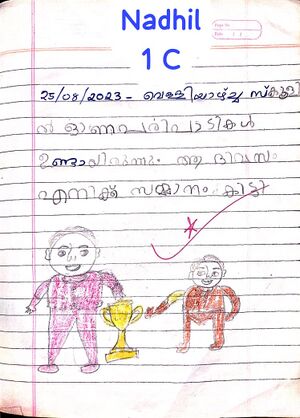 Nadhil
1 C
Page No
Date
25/08/2023 - വെള്ളിയാഴ്ച സ്കൂളി
ൽ ഓണപരിപാടികൾ
ഉണ്ടായിരുന്നു. ആ ദിവസം
എനിക്ക് സമ്മാനം കിട്ടി